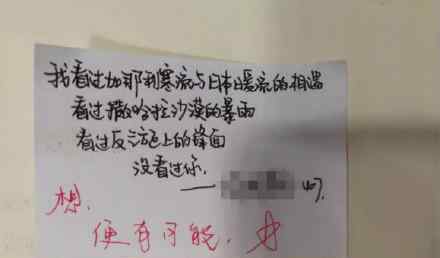 我看过加那利寒流与日本暖流的相遇
看过撒哈拉沙漠的暴雨
看过反气旋上的锋面
没看过你.
——
想.
便有可能,